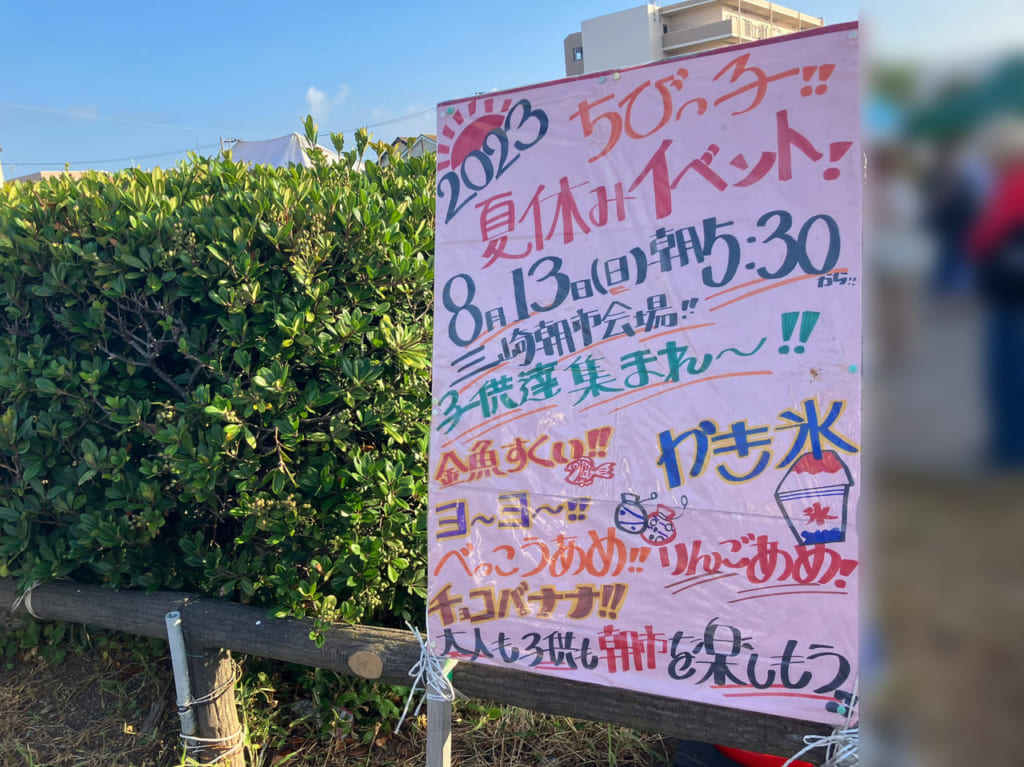 2023 ちびっ子!!
夏休みイベント!
8月13日(日)朝5:30から!!
三崎朝市会場!!
子供達集まれ〜!!
金魚すくい!!
かき氷
氷
ヨ〜ヨ〜!!
べっこうあめ!! りんごあめ!
チョコバナナ!!
大人も子供も朝市を楽しもう